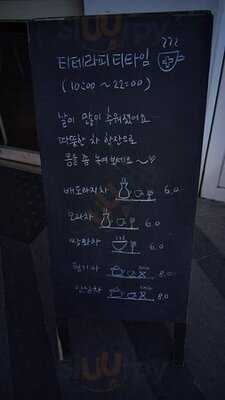 티테라피 티타임
(10:00 ~ 22:00)
날이 많이 추워졌어요
따뜻한 차 한잔으로
몸을 좀 녹여보세요 ~♡
배도라지차 6.0
모과차 6.0
쌍화차 6.0
8.0
인삼차 8.0